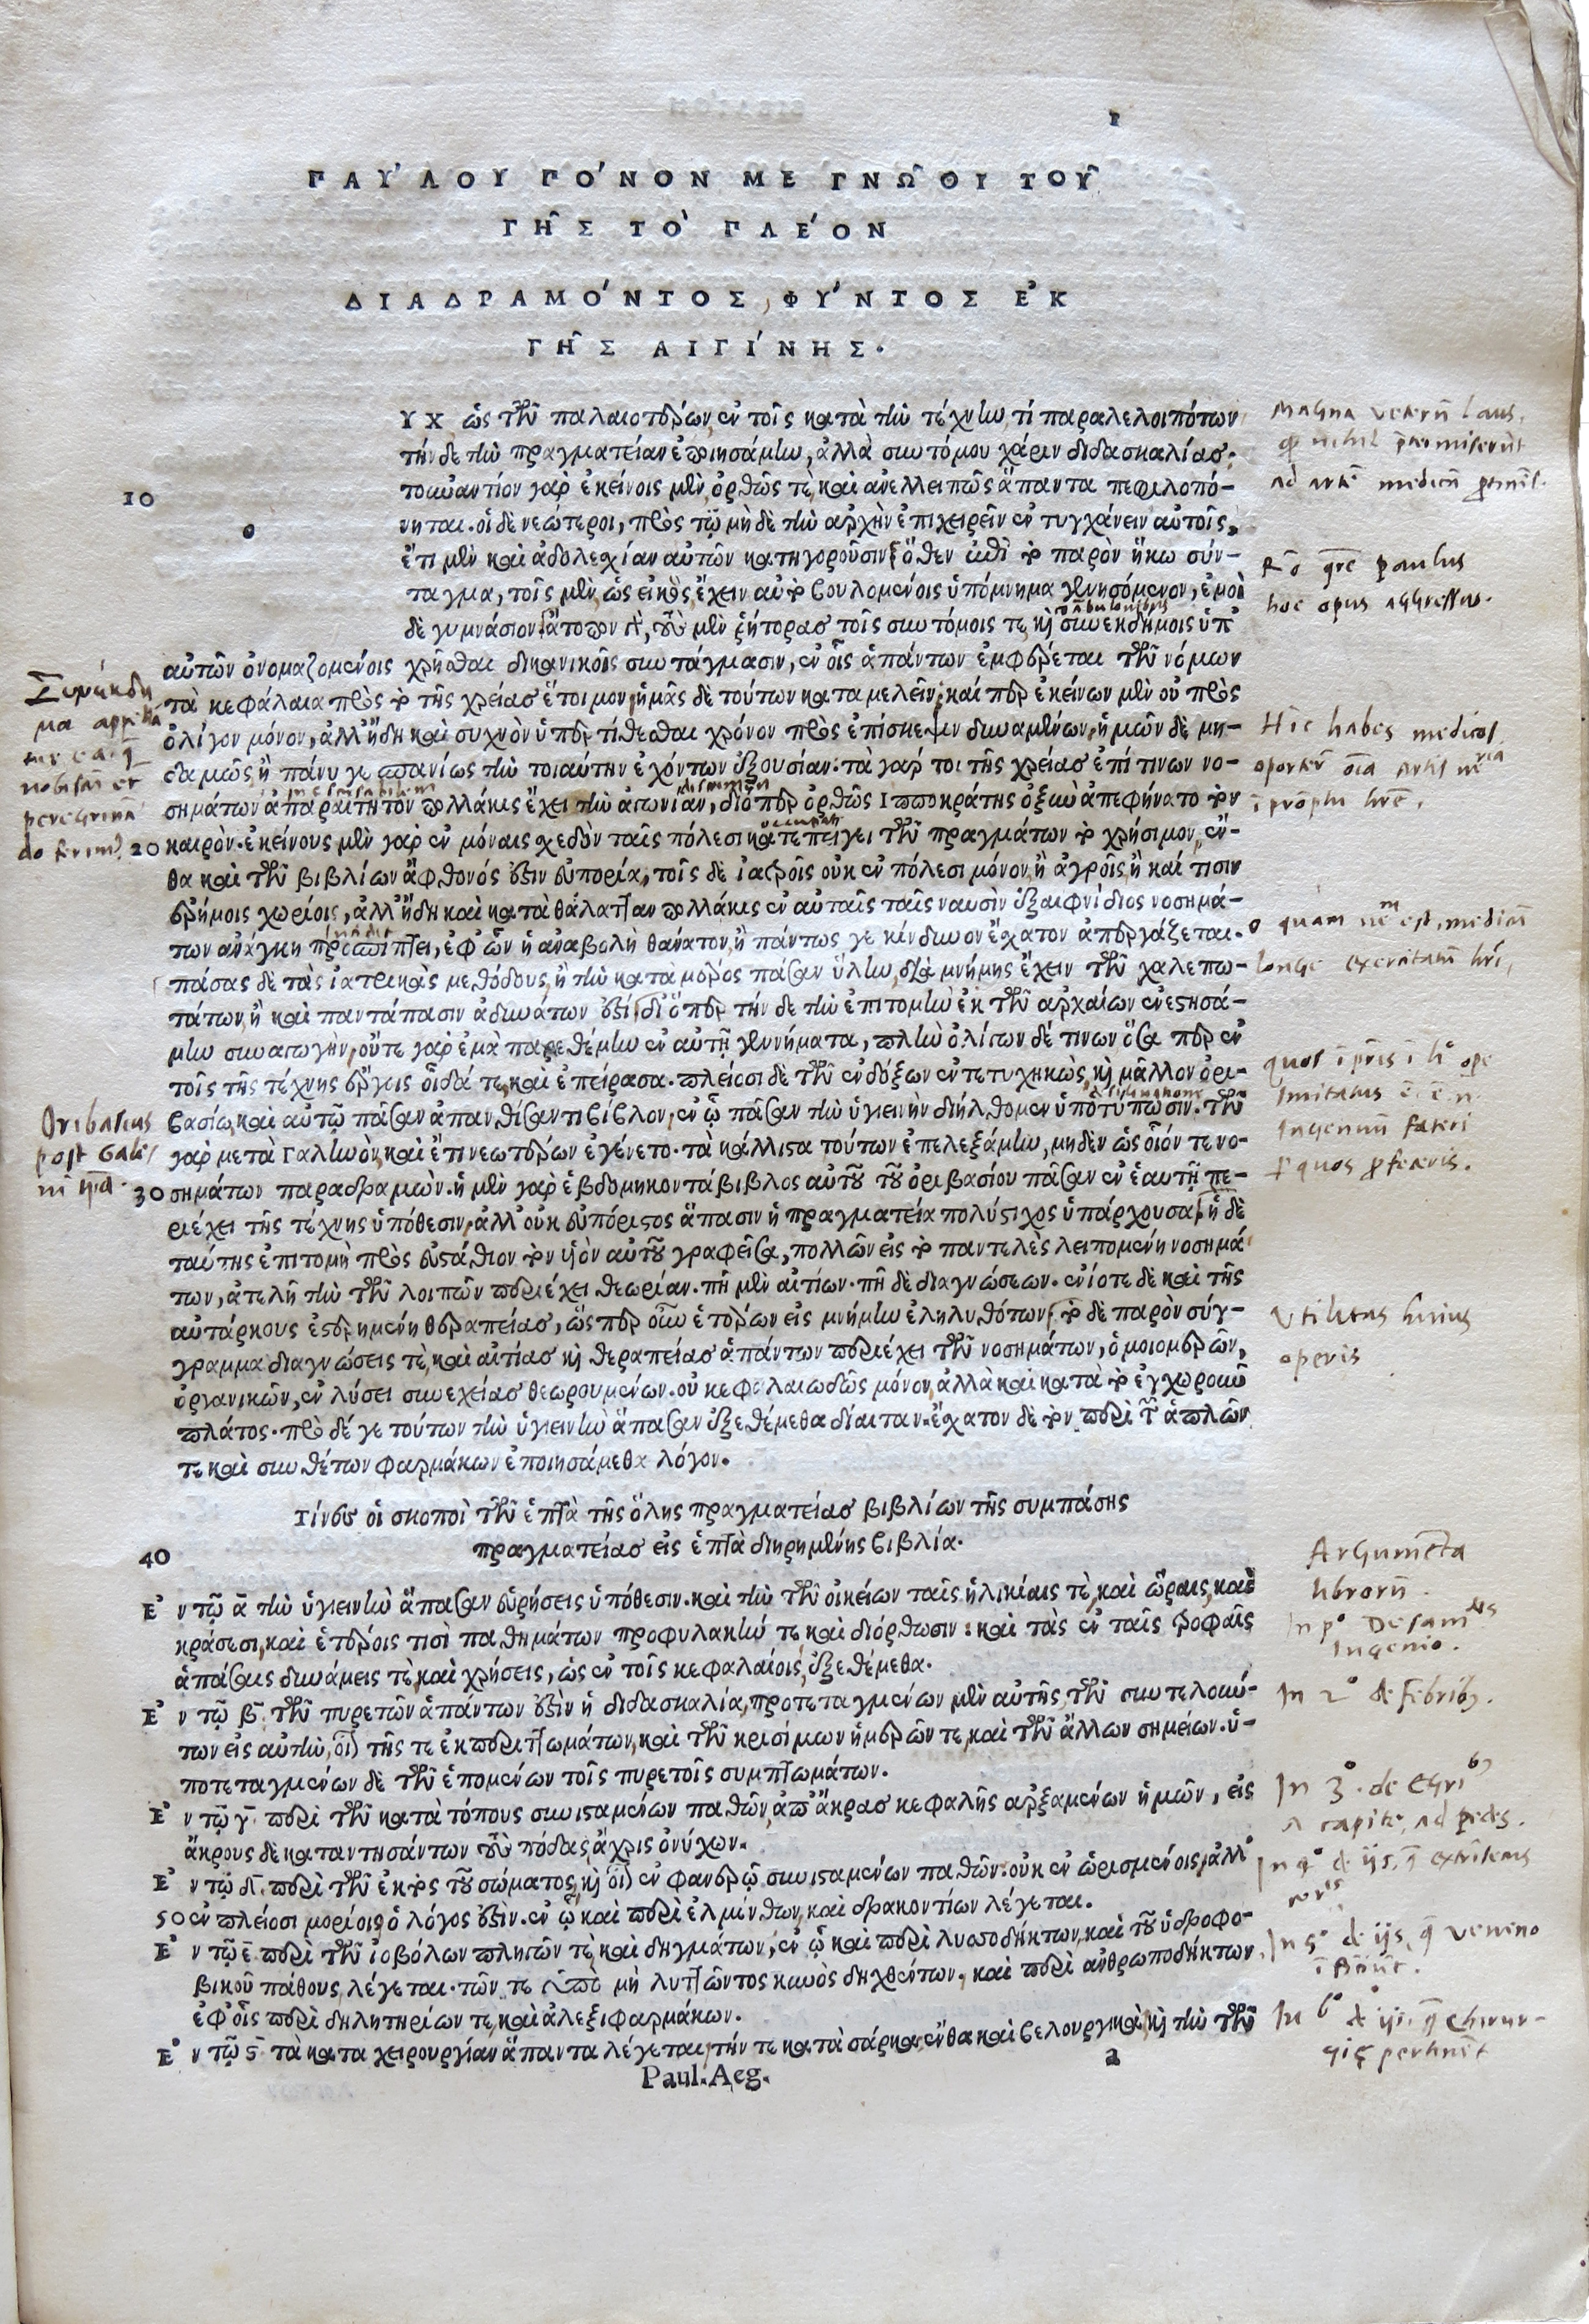 ΠΑΎΛΟΥ ΠΌΝΟΝ ΜΕ ΓΝΩ͂ΘΙ ΤΟΥ͂
ΓΗ͂Σ ΤῸ ΠΛΈΟΝ
ΔΙΑΔΡΑΜΌΝΤΟΣ, ΦΎΝΤΟΣ ἘΚ
ΓΗ͂Σ ΑΙΓΊΝΗΣ.
ΥΧ ὡς τῶν παλαιοτέρων, ἐν τοῖς κατὰ τὴν τέχνην, τί παραλελοιπότων
τήνδε τὴν πραγματείαν ἐποιησάμην, ἀλλὰ συντόμου χάριν διδασκαλίας.
10 τοὐναντίον γὰρ ἐκείνοις μὲν, ὀρθῶς τὲ, καὶ ἀνελλειπῶς ἅπαντα πεφιλοπό-
νηται. οἱ δὲ νεώτεροι, πρὸς τῷ μὴ δὲ τὴν ἀρχὴν ἐπιχειρεῖν ἐντυγχάνειν αὐτοῖς,
ἔτι μὲν καὶ ἀδολεχίαν αὐτῶν κατηγοροῦσιν. ὅθεν ἐπὶ τὸ παρὸν ἥκω σύν-
ταγμα, τοῖς μὲν, ὡς εἰκὸς, ἔχειν αὐτὸ βουλομένοις ὑπόμνημα γενησόμενον, ἐμοὶ
δὲ γυμνάσιον. ἄτοπον γὰρ, τοὺς μὲν ῥήτορας τοῖς συντόμοις τε, καὶ συνεκδήμοις ὑπ'
αὐτῶν ὀνομαζομένοις χρῆσθαι δικανικοῖς συντάγμασιν, ἐν οἷς ἁπάντων ἐμφέρεται τῶν νόμων
τὰ κεφάλαια πρὸς τὸ τῆς χρείας ἕτοιμον, ἡμᾶς δὲ τούτων καταμελεῖν, καί περ ἐκείνων μὲν οὐ πρὸς
ὀλίγον μόνον, ἀλλ' ἤδη καὶ συχνὸν ὑπερτίθεσθαι χρόνον πρὸς ἐπίσκεψιν δυναμένων, ἡμῶν δὲ μη-
δαμῶς, ἢ πάνυ γε σπανίως τὴν τοιαύτην ἐχόντων ἐξουσίαν. τὰ γάρ τοι τῆς χρείας ἐπί τινων νο-
σημάτων ἀπαραίτητον πολλάκις ἔχει τὴν ἀγωνίαν, διόπερ ὀρθῶς Ἱπποκράτης ὀξὺν ἀπεφήνατο τὸν
20 καιρόν. ἐκείνους μὲν γὰρ ἐν μόναις σχεδὸν ταῖς πόλεσι κατεπείγει τῶν πραγμάτων τὸ χρήσιμον, ἔν-
θα καὶ τῶν βιβλίων ἄφθονός ἐστιν εὐπορία, τοῖς δὲ ἰατροῖς οὐκ ἐν πόλεσι μόνον, ἢ ἀγροῖς, ἢ καί τισιν
ἐρήμοις χωρίοις, ἀλλ' ἤδη καὶ κατὰ θάλατταν πολλάκις ἐν αὐταῖς ταῖς ναυσὶν ἐξαιφνίδιος νοσημά-
των ἀνάγκη προσπίπτει, ἐφ' ὧν ἡ ἀναβολὴ θάνατον, ἢ πάντως γε κίνδυνον ἔσχατον ἀπεργάζεται.
πάσας δὲ τὰς ἰατρικὰς μεθόδους, ἢ τὴν κατὰ μέρος πᾶσαν ὕλην, διὰ μνήμης ἔχειν τῶν χαλεπω-
τάτων, ἢ καὶ παντάπασιν ἀδυνάτων ἐστί. διόπερ τήνδε τὴν ἐπιτομὴν ἐκ τῶν ἀρχαίων ἐνεστησά-
μην συναγωγήν, οὔτε γὰρ ἐμὰ παρεθέμην ἐν αὐτῇ γεννήματα, πλὴν ὀλίγων δέ τινων ὅσα περ ἐν
τοῖς τῆς τέχνης ἔργοις οἶδά τε, καὶ ἐπείρασα. πλείοσι δὲ τῶν ἐνδόξων ἐντετυχηκὼς, καὶ μᾶλλον ὀρι-
βασίῳ, καὶ αὐτῷ πᾶσαν ἀπανθίσαντι βίβλον, ἐν ᾧ πᾶσαν τὴν ὑγιεινὴν διήλθομεν ὑποτύπωσιν. τῶν
γὰρ μετὰ Γαληνὸν, καὶ ἔτι νεωτέρων ἐγένετο. τὰ κάλλιστα τούτων ἐπελεξάμην, μηδὲν ὡς οἷόν τε νο-
30 σημάτων παραδραμών. ἡ μὲν γὰρ ἑβδομηκοντάβιβλος αὐτοῦ τοῦ ὀριβασίου πᾶσαν ἐν ἑαυτῇ πε-
ριέχει τῆς τέχνης ὑπόθεσιν, ἀλλ' οὐκ εὐπόριστος ἅπασιν ἡ πραγματεία πολύστιχος ὑπάρχουσα. ἡ δὲ
ταύτης ἐπιτομὴ πρὸς εὐστάθιον τὸν υἱὸν αὐτοῦ γραφεῖσα, πολλῶν εἰς τὸ παντελὲς λειπομένη νοσημά
των, ἀτελῆ τὴν τῶν λοιπῶν περιέχει θεωρίαν. πῆ μὲν αἰτίων. πῆ δὲ διαγνώσεων. ἐνίοτε δὲ καὶ τῆς
αὐτάρκους ἐστερημένη θεραπείας, ὥς περ οὖν ἑτέρων εἰς μνήμην ἐληλυθότων. τὸ δὲ παρὸν σύγ-
γραμμα διαγνώσεις τὲ, καὶ αἰτίας καὶ θεραπείας ἁπάντων περιέχει τῶν νοσημάτων, ὁμοιομερῶν,
ὀργανικῶν, ἐν λύσει συνεχείας θεωρουμένων. οὐ κεφαλαιωδῶς μόνον, ἀλλὰ καὶ κατὰ τὸ ἐγχωροῦν
πλάτος. πρὸ δέ γε τούτων τὴν ὑγιεινὴν ἅπασαν ἐξεθέμεθα δίαιταν. ἔσχατον δὲ τὸν περὶ τῶν ἁπλῶν
τε καὶ συνθέτων φαρμάκων ἐποιησάμεθα λόγον.
Τίνες οἱ σκοποὶ τῶν ἑπτὰ τῆς ὅλης πραγματείας βιβλίων τῆς συμπάσης
40 πραγματείας εἰς ἑπτὰ διηρημένης βιβλία.
Ἐν τῷ α̅ τὴν ὑγιεινὴν ἅπασαν εὑρήσεις ὑπόθεσιν. καὶ τὴν τῶν οἰκείων ταῖς ἡλικίαις τὲ, καὶ ὥραις, καὶ
κράσεσι, καὶ ἑτέροις τισὶ παθημάτων προφυλακήν τε καὶ διόρθωσιν: καὶ τὰς ἐν ταῖς τροφαῖς
ἁπάσαις δυνάμεις τὲ, καὶ χρήσεις, ὡς ἐν τοῖς κεφαλαίοις ἐξεθέμεθα.
Ἐν τῷ β̅. τῶν πυρετῶν ἁπάντων ἐστὶν ἡ διδασκαλία, προτεταγμένων μὲν αὐτῆς, τῶν συντελούν-
των εἰς αὐτὴν, οἷον τῆς τε ἐκ περιττωμάτων, καὶ τῶν κρισίμων ἡμερῶν τε, καὶ τῶν ἄλλων σημείων. ὑ-
ποτεταγμένων δὲ τῶν ἑπομένων τοῖς πυρετοῖς συμπτωμάτων.
Ἐν τῷ γ̅. περὶ τῶν κατὰ τόπους συνισταμένων παθῶν, ἀπ' ἄκρας κεφαλῆς ἀρξαμένων ἡμῶν, εἰς
ἄκρους δὲ καταντησάντων τοὺς πόδας, ἄχρις ὀνύχων.
Ἐν τῷ δ̅. περὶ τῶν ἐκτὸς τοῦ σώματος, καὶ οἷον ἐν φανερῷ συνισταμένων παθῶν: οὐκ ἐν ὡρισμένοις, ἀλλ'
50 ἐν πλείοσι μορίοις, ὁ λόγος ἐστίν. ἐν ᾧ καὶ περὶ ἑλμίνθων, καὶ δρακοντίων λέγεται.
Ἐν τῷ ε̅ περὶ τῶν ἰοβόλων πληγῶν τὲ, καὶ δηγμάτων, ἐν ᾧ καὶ περὶ λυσσοδήκτων, καὶ τοῦ ὑδροφο-
βικοῦ πάθους, λέγεται. τῶν τε ὑπὸ μὴ λυττῶντος κυνὸς δηχθέντων, καὶ περὶ ἀνθρωποδήκτων
ἐφ' οἷς περὶ δηλητηρίων τε, καὶ ἀλεξιφαρμάκων.
Ἐν τῷ ϛ̅ τὰ κατα χειρουργίαν ἅπαντα λέγεται, τήν τε κατὰ σάρκα, ἔνθα καὶ βελουργικὰ, καὶ τὴν τῶν
Paul. Aeg. a
Magna veterū laus,
ad artē medicā
paulus
hoc opus aggressus.
Hic habes medicos
longe
Ingenium fateri
Utilitas huius
operis
Argumēta
librorū.
Ingenio.
In 2° de febrib9.
In 3°. de
a capite, ad pedes.
In 5° de ijs, q̄ veneno
In 6° de ijs, q̄ chirur-
giȩ pertinēt
nobiscū et
Oribasius
post Gale